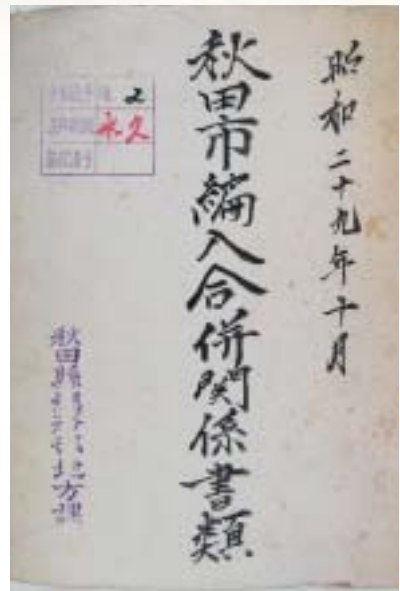 昭和二十九年十月
秋田市編入合併関係書類
2
永久
秋田県
地方課